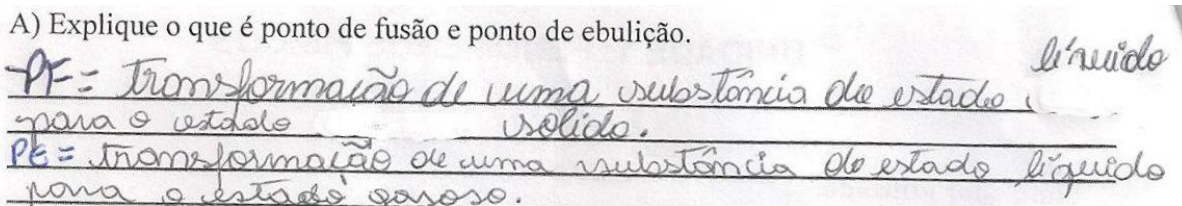 A) Explique o que é ponto de fusão e ponto de ebulição.
líquido
-PF = Transformação de uma substância do estado
para o estado sólido.
PE = transformação de uma substância do estado líquido
para o estado gasoso.